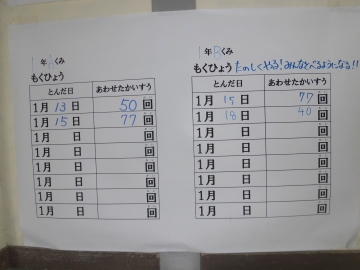 1年Aくみ
もくひょう
とんだ日 あわせたかいすう
1月 13日 50回
1月 15日 77回
1月 日 回
1月 日 回
1月 日 回
1月 日 回
1月 日 回
1月 日 回
1月 日 回
1年Bくみ
もくひょう たのしくやる!みんなとべるようになる!!
とんだ日 あわせたかいすう
1月 15日 77回
1月 18日 40回
1月 日 回
1月 日 回
1月 日 回
1月 日 回
1月 日 回
1月 日 回
1月 日 回